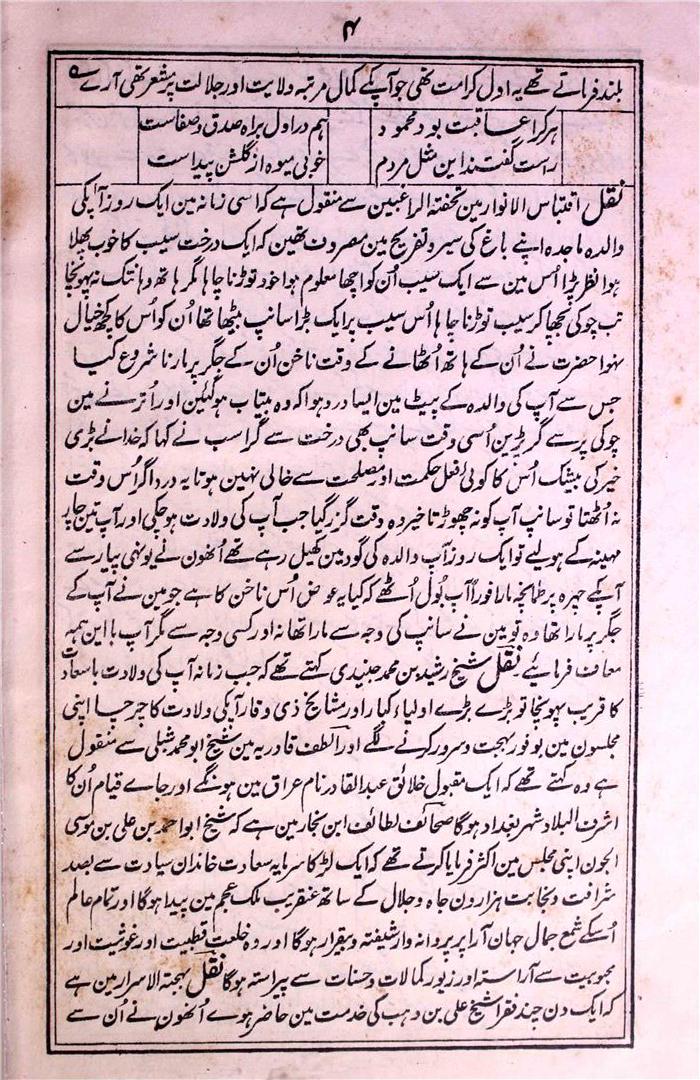 ۴
بلند فرماتے تھے یہ اول کرامت تھی جو آپ کے کمال مرتبہ ولایت اور جلالت پر مشعر تھی آرے ؎
ہر کرا عاقبت بود محمود ہم در اول براہ صدق و صفاست
راست گفتند این مثل مردم خوبی میوہ از گلشن پیداست
نقل اقتباس الانوار مین تحفۃ الراغبین سے منقول ہے کہ اسی زمانہ مین ایک روز آپکی
والدہ ماجدہ اپنے باغ کی سیر و تفریح مین مصروف تھین کہ ایک درخت سیب کا خوب پھلا
ہوا نظر پڑا اُس مین سے ایک سیب اُن کو اچھا معلوم ہوا خود توڑنا چاہا مگر ہاتھ وہانتک نہ پہونچا
تب چوکی بچھا کر سیب توڑنا چاہا اُس سیب پر ایک بڑا سانپ بیٹھا تھا اُن کو اُس کا کچھ خیال
نہوا حضرت نے اُن کے ہاتھ اُٹھانے کے وقت ناخن اُن کے جگر پر مارنا شروع کیا
جس سے آپ کی والدہ کے پیٹ مین ایسا درد ہوا کہ وہ بیتاب ہوگئین اور اُترنے مین
چوکی پر سے گر پڑین اُسی وقت سانپ بھی درخت سے گرا سب نے کہا کہ خدا نے بڑی
خیر کی بیشک اُس کا کوئی فعل حکمت اور مصلحت سے خالی نہین ہوتا یہ درد اگر اُس وقت
نہ اُٹھتا تو سانپ آپ کو نہ چھوڑتا خیر وہ وقت گزر گیا جب آپ کی ولادت ہو چکی اور آپ تین چار
مہینہ کے ہولیے تو ایک روز آپ والدہ کی گود مین کھیل رہے تھے اُنھون نے یونہی پیار سے
آپکے چہرہ پر طمانچہ مارا فوراً آپ بول اُٹھے کہ کیا یہ عوض اُس ناخن کا ہے جو مین نے آپ کے
جگر پر مارا تھا وہ تو مین نے سانپ کی وجہ سے مارا تھا نہ اور کسی وجہ سے مگر آپ با این ہمہ
معاف فرمائیے نقل شیخ رشید بن محمد جنیدی کہتے تھے کہ جب زمانہ آپ کی ولادت باسعادت
کا قریب پہونچا تو بڑے بڑے اولیاء کبار اور مشائخ ذی وقار آپکی ولادت کا چرچا اپنی
مجلسون مین بوفور بہجت و سرور کرنے لگے اور الطف قادریہ مین شیخ ابو محمد شبلی سے منقول
ہے وہ کہتے تھے کہ ایک مقبول خلائق عبدالقادر نام عراق مین ہونگے اور جاے قیام اُن کا
اشرف البلاد شہر بغداد ہوگا صحائف لطائف ابن نجار مین ہے کہ شیخ ابو احمد بن علی بن موسی
الجون اپنی مجلس مین اکثر فرمایا کرتے تھے کہ ایک لڑکا سرمایہ سعادت خاندان سیادت سے بصد
شرافت و نجابت ہزارون جاہ و جلال کے ساتھ عنقریب ملک عجم مین پیدا ہوگا اور تمام عالم
اُسکے شمع جمال جہان آرا پر پروانہ وار شیفتہ و بیقرار ہوگا اور وہ خلعت قطبیت اور غوثیت اور
محبوبیت سے آراستہ اور زیور کمالات و حسنات سے پیراستہ ہوگا نقل بہجتہ الاسرار مین ہے
کہ ایک دن چند فقرا شیخ علی بن وہب کی خدمت مین حاضر ہوے اُنھون نے اُن سے